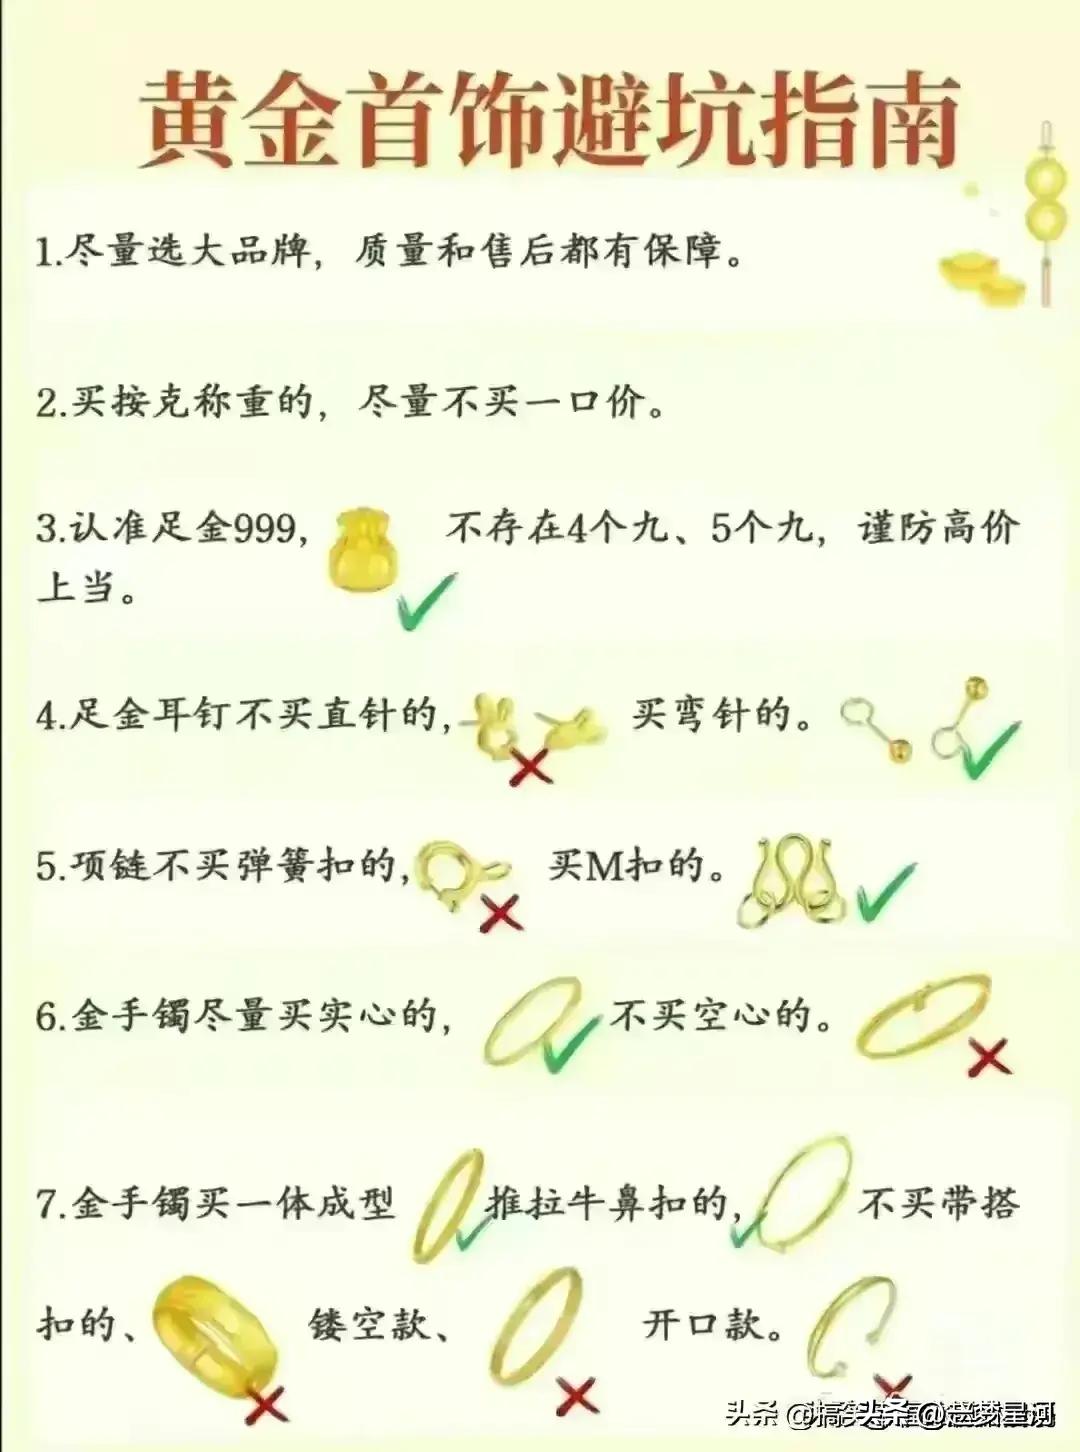 黄金首饰避坑指南
1.尽量选大品牌，质量和售后都有保障。
2.买按克称重的，尽量不买一口价。
3.认准足金999，不存在4个九、5个九，谨防高价
上当。
4.足金耳钉不买直针的，买弯针的。
5.项链不买弹簧扣的，买M扣的。
6.金手镯尽量买实心的，不买空心的。
7.金手镯买一体成型 推拉牛鼻扣的，不买带搭
扣的、镂空款、开口款。
头条 @搞笑 头条 @